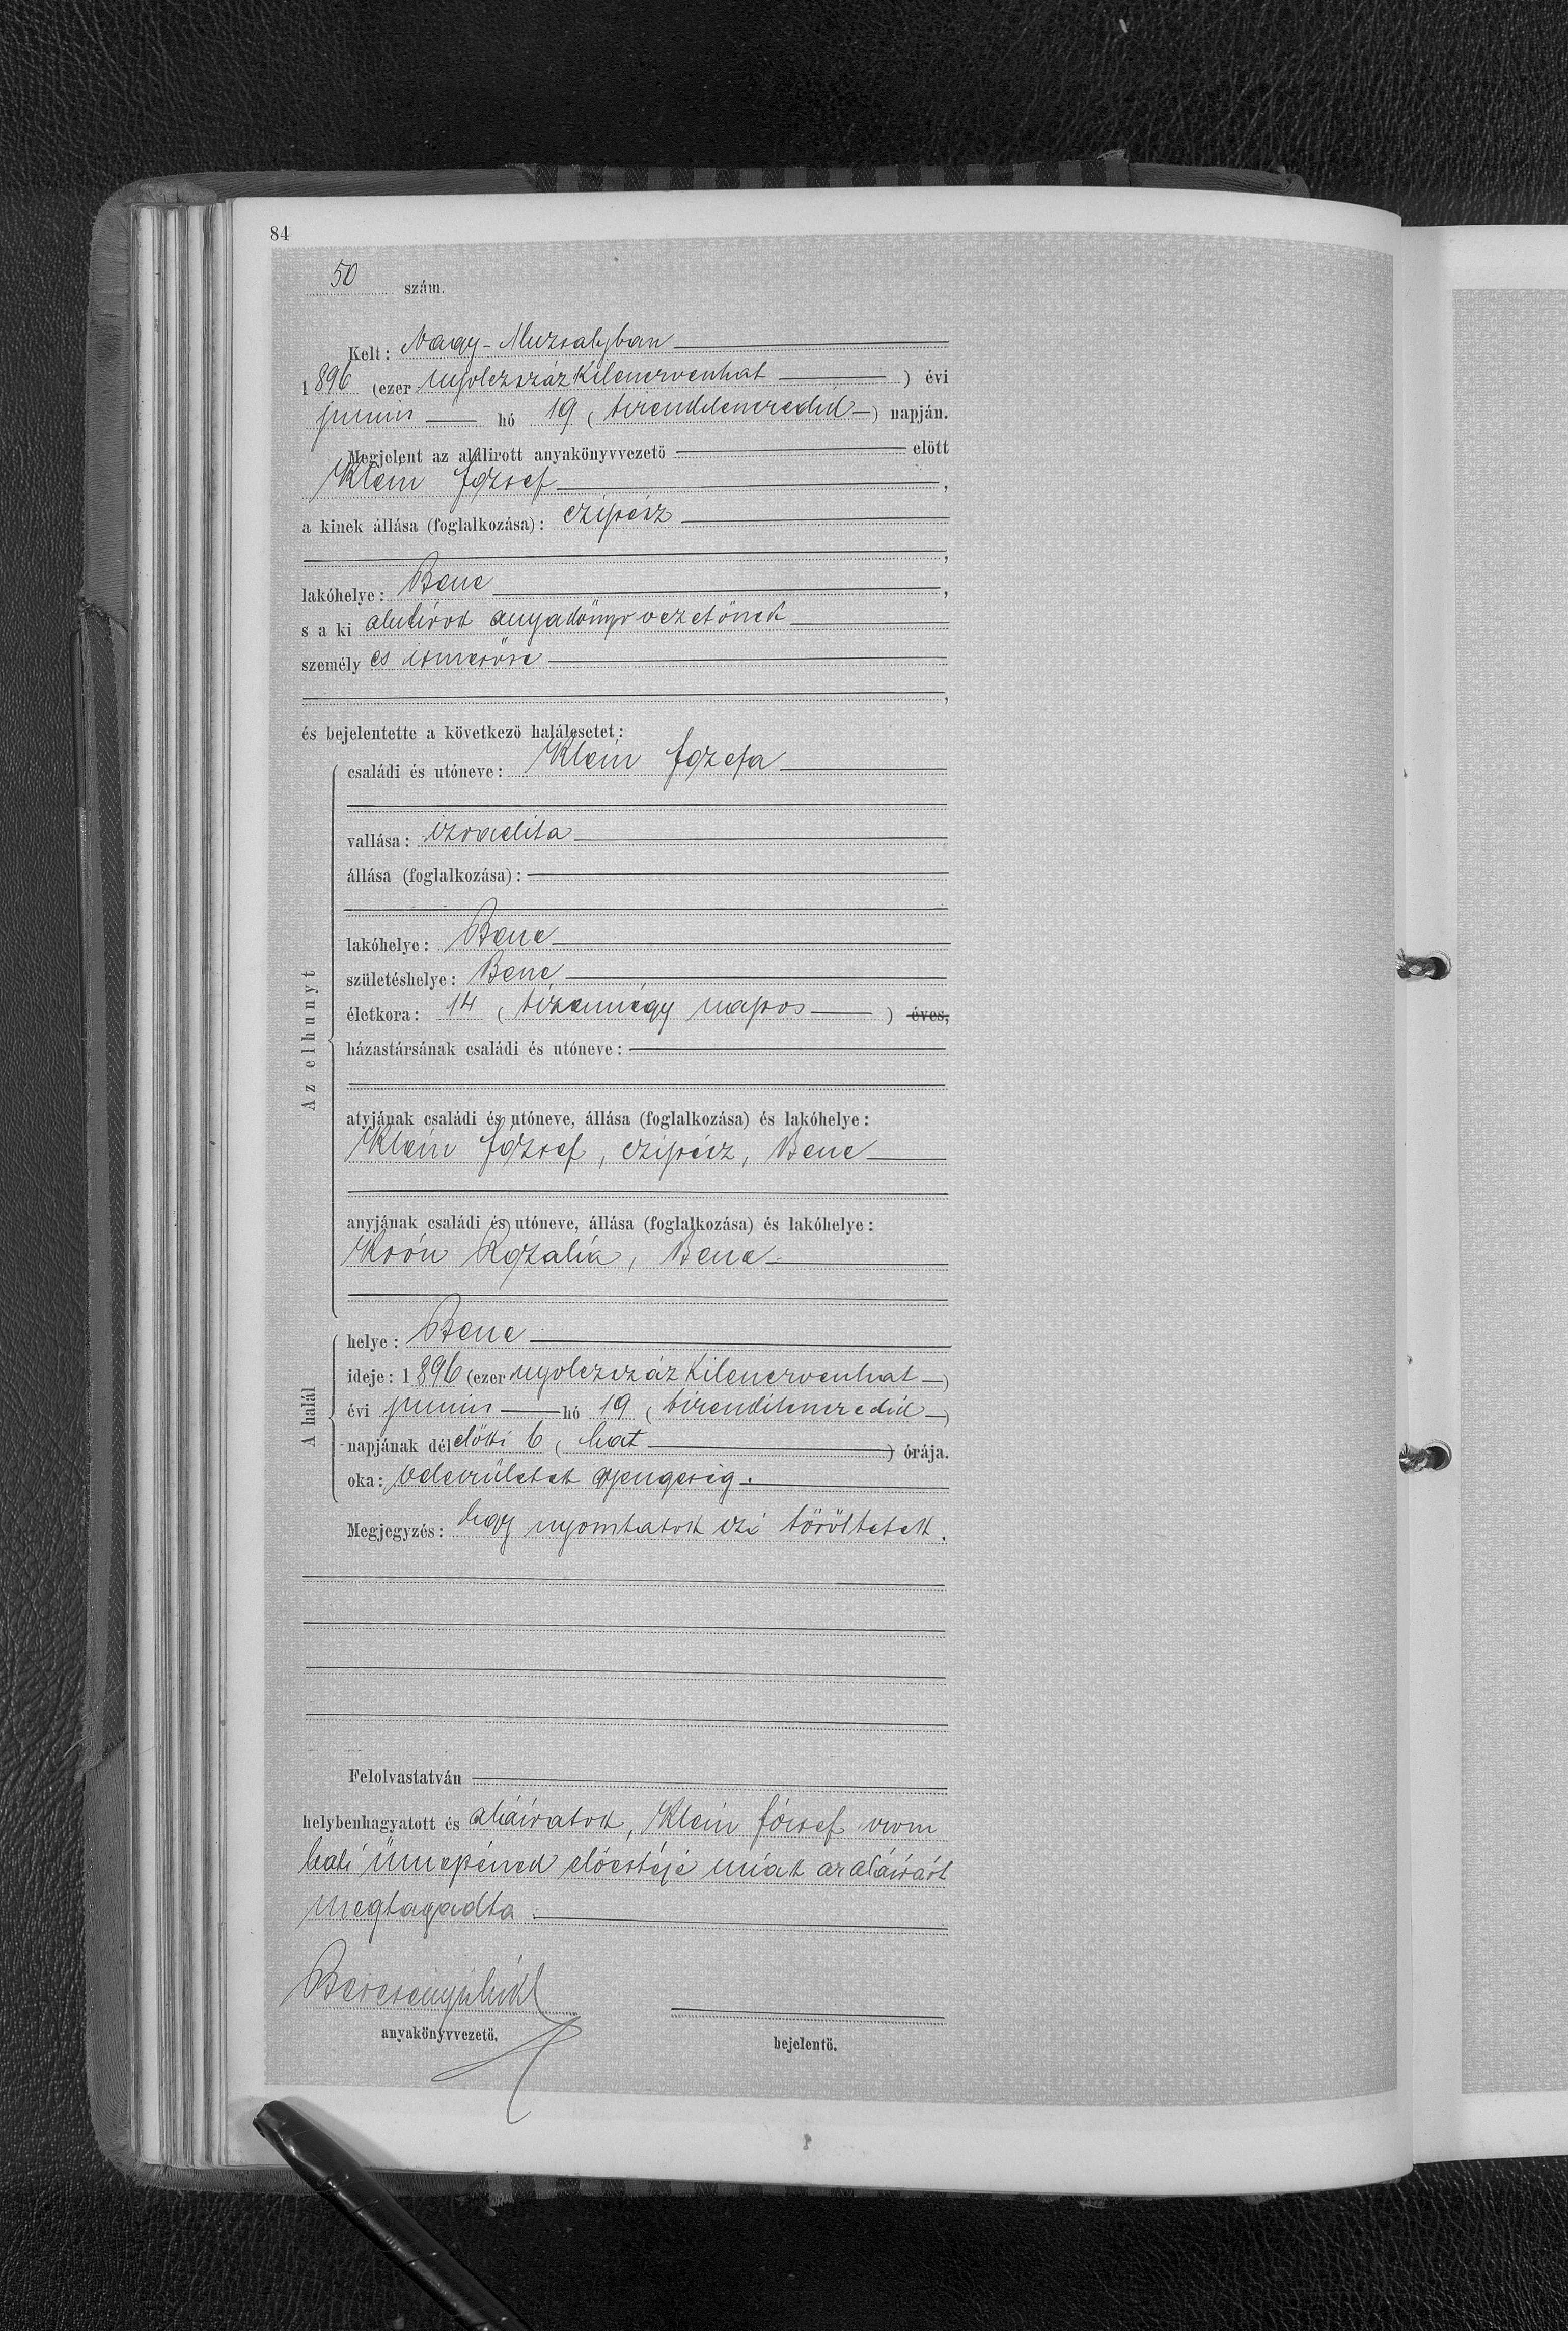 84
50 szám.
Kelt: Nagy-Muzsalyban
1896 (ezer nyolczszázkilenczvenhat) évi
junius hó 19 (tizenkilenczedik) napján.
Megjelent az alulirott anyakönyvvezető előtt
Klein József,
a kinek állása (foglalkozása): czipész
,
lakóhelye: Bene,
s a ki alulírott anyakönyvvezetőnek
személyes ismerőse
,
és bejelentette a következő halálesetet:
Az elhunyt
családi és utóneve: Klein Józefa
vallása: izraelita
állása (foglalkozása):
lakóhelye: Bene
születéshelye: Bene
életkora: 14 (tizennégy napos) éves,
házastársának családi és utóneve:
atyjának családi és utóneve, állása (foglalkozása) és lakóhelye:
Klein József, czipész, Bene
anyjának családi és utóneve, állása (foglalkozása) és lakóhelye:
Kroón Rozália, Bene
A halál
helye: Bene
ideje: 1896 (ezer nyolczszázkilenczvenhat)
évi junius hó 19 (tizenkilenczedik)
napjának délelőtti 6 (hat) órája.
oka: veleszületett gyengeség.
Megjegyzés: Egy nyomtatott szó töröltetett.
Felolvastatván
helybenhagyatott és aláíratott, Klein József szom
bati ünnepének előestéje miatt az aláírást
megtagadta
anyakönyvvezető.
bejelentő.